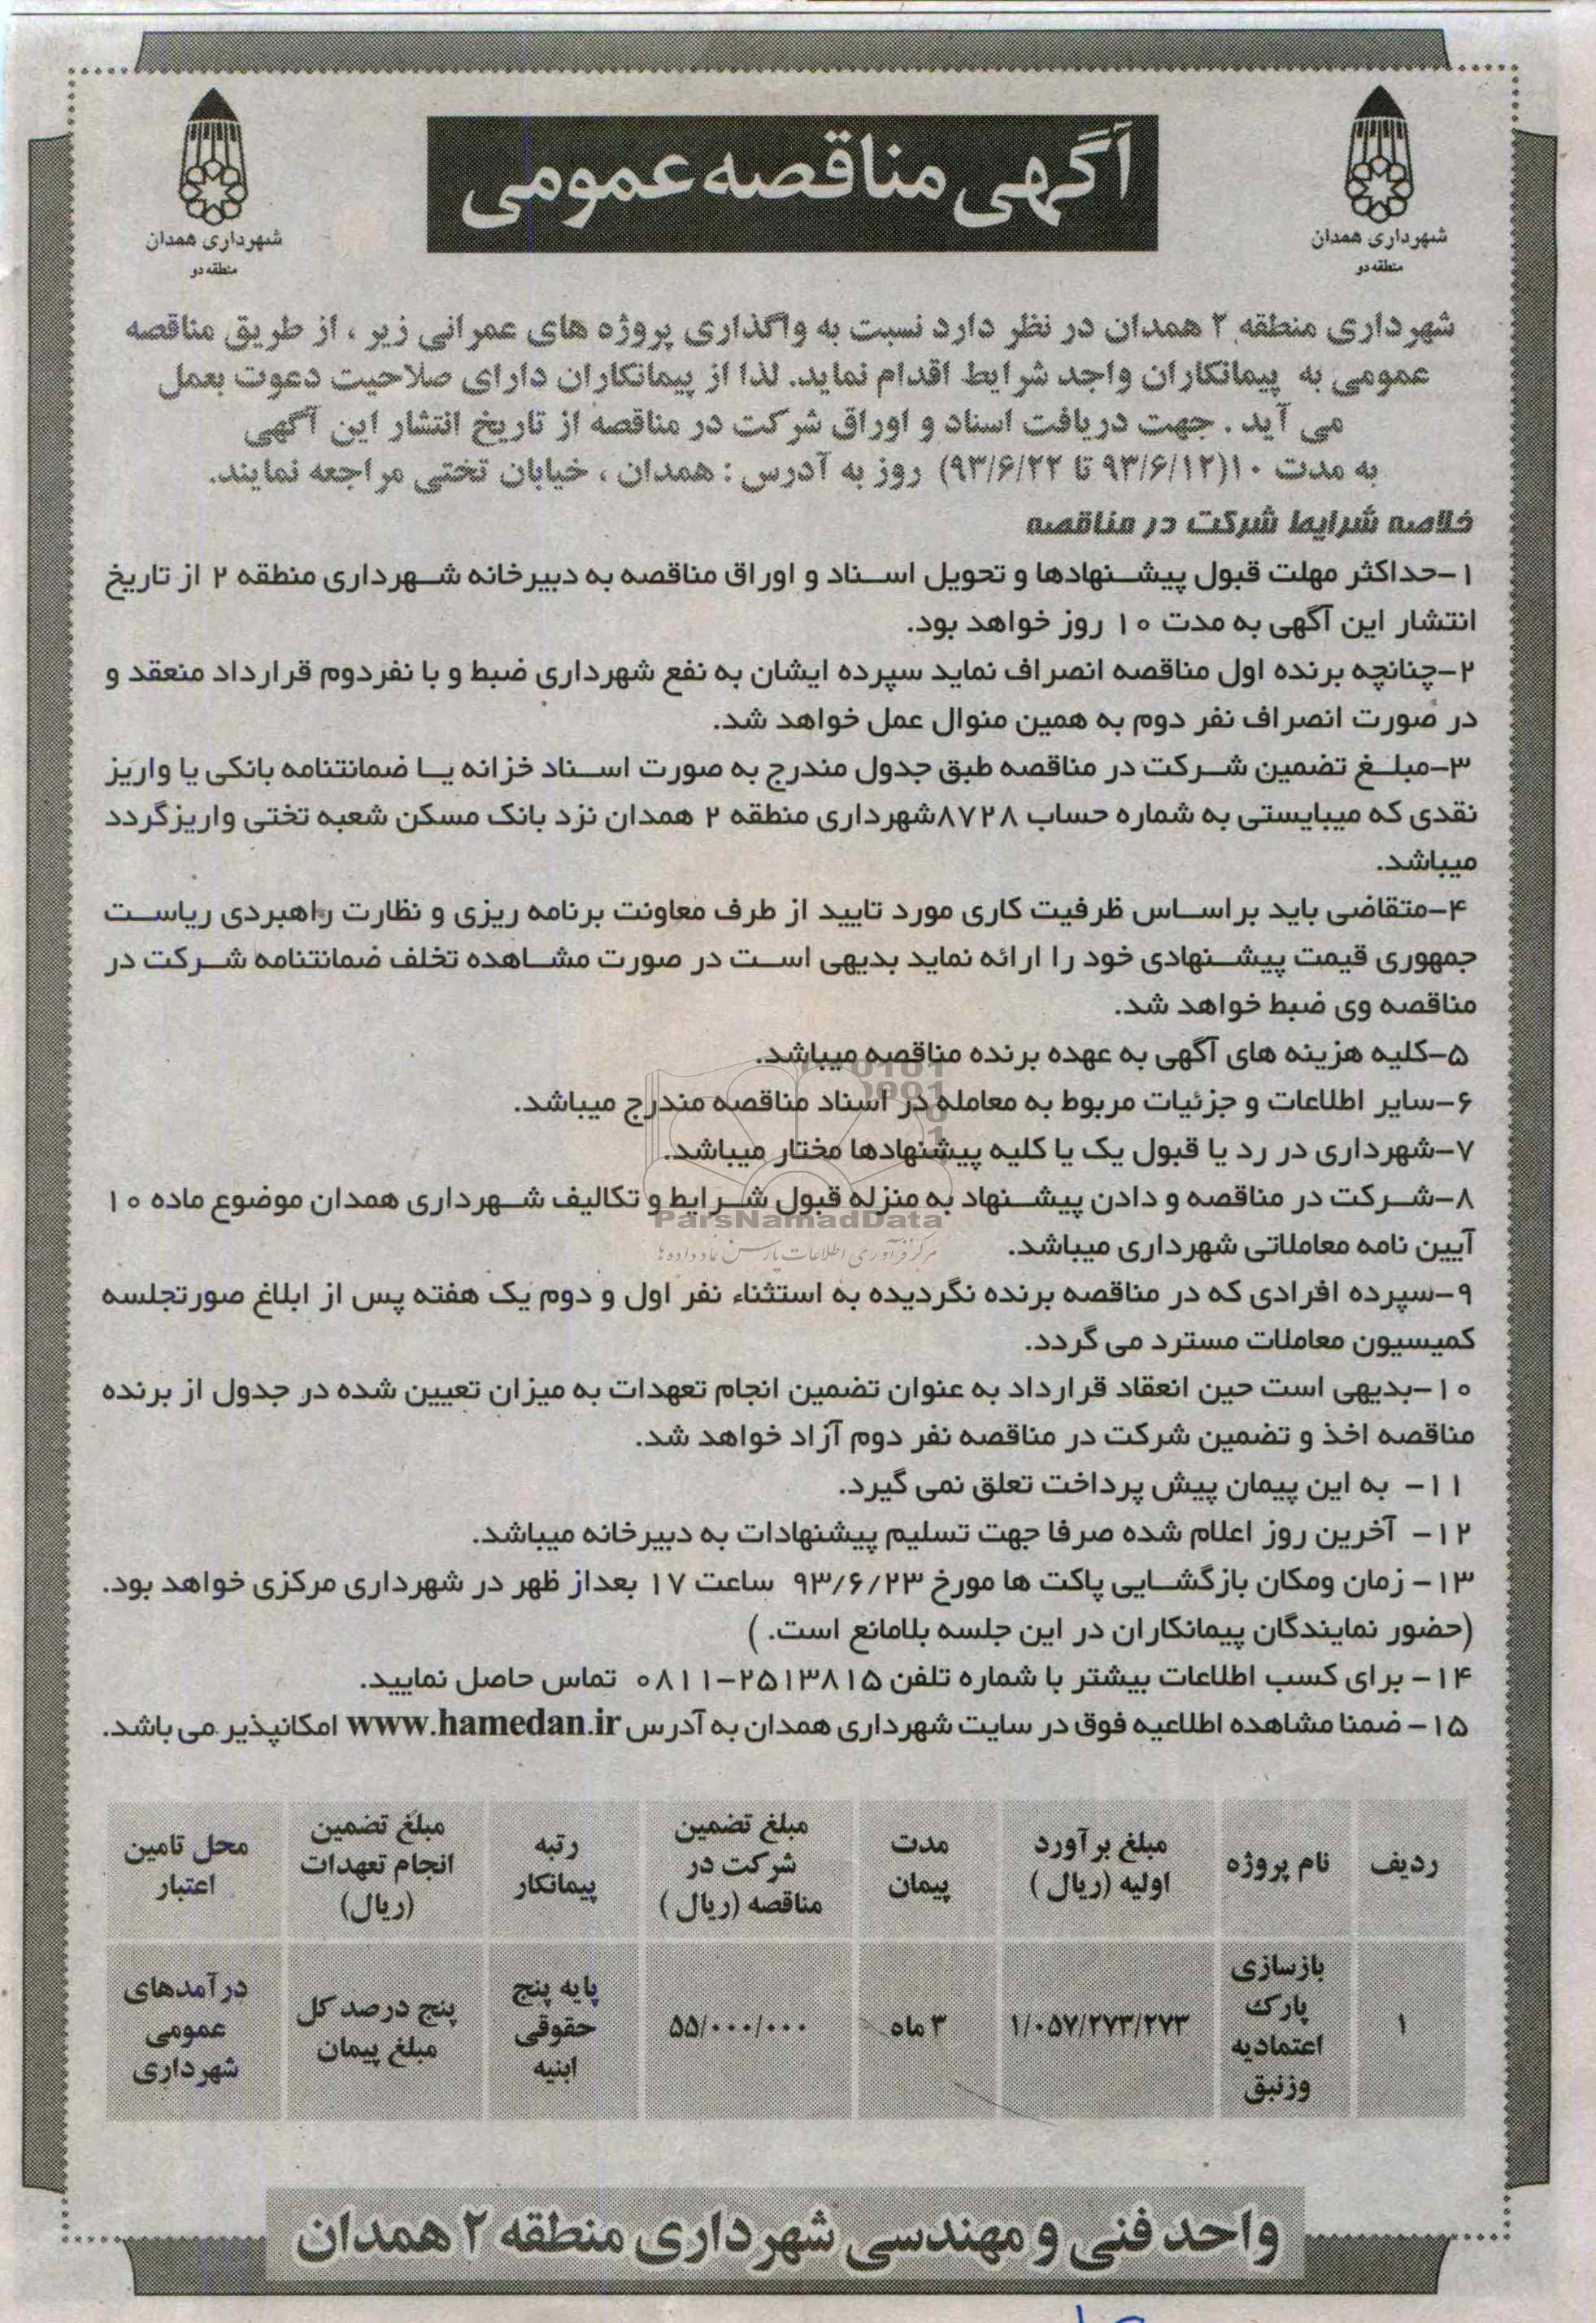 آگهی مناقصه عمومی
شهرداری همدان
منطقه دو
شهرداری همدان
منطقه دو
شهرداری منطقه ۲ همدان در نظر دارد نسبت به واگذاری پروژه های عمرانی زیر ، از طریق مناقصه
عمومی به پیمانکاران واجد شرایط اقدام نماید. لذا از پیمانکاران دارای صلاحیت دعوت بعمل
می آید . جهت دریافت اسناد و اوراق شرکت در مناقصه از تاریخ انتشار این آگهی
به مدت ۱۰(۹۳/۶/۱۲ تا ۹۳/۶/۲۲) روز به آدرس : همدان ، خیابان تختی مراجعه نمایند.
خلاصه شرایط شرکت در مناقصه
۱-حداکثر مهلت قبول پیشنهادها و تحویل اسناد و اوراق مناقصه به دبیرخانه شهرداری منطقه ۲ از تاریخ
انتشار این آگهی به مدت ۱۰ روز خواهد بود.
۲-چنانچه برنده اول مناقصه انصراف نماید سپرده ایشان به نفع شهرداری ضبط و با نفردوم قرارداد منعقد و
در صورت انصراف نفر دوم به همین منوال عمل خواهد شد.
۳-مبلغ تضمین شرکت در مناقصه طبق جدول مندرج به صورت اسناد خزانه یا ضمانتنامه بانکی یا واریز
نقدی که میبایستی به شماره حساب ۸۷۲۸شهرداری منطقه ۲ همدان نزد بانک مسکن شعبه تختی واریزگردد
میباشد.
۴-متقاضی باید براساس ظرفیت کاری مورد تایید از طرف معاونت برنامه ریزی و نظارت راهبردی ریاست
جمهوری قیمت پیشنهادی خود را ارائه نماید بدیهی است در صورت مشاهده تخلف ضمانتنامه شرکت در
مناقصه وی ضبط خواهد شد.
۵-کلیه هزینه های آگهی به عهده برنده مناقصه میباشد.
۶-سایر اطلاعات و جزئیات مربوط به معامله در اسناد مناقصه مندرج میباشد.
۷-شهرداری در رد یا قبول یک یا کلیه پیشنهادها مختار میباشد.
۸-شرکت در مناقصه و دادن پیشنهاد به منزله قبول شرایط و تکالیف شهرداری همدان موضوع ماده ۱۰
ParsNamadData
آیین نامه معاملاتی شهرداری میباشد.
مرکز فرآوری اطلاعات پارس نماد داده ها
۹-سپرده افرادی که در مناقصه برنده نگردیده به استثناء نفر اول و دوم یک هفته پس از ابلاغ صورتجلسه
کمیسیون معاملات مسترد می گردد.
۱۰-بدیهی است حین انعقاد قرارداد به عنوان تضمین انجام تعهدات به میزان تعیین شده در جدول از برنده
مناقصه اخذ و تضمین شرکت در مناقصه نفر دوم آزاد خواهد شد.
۱۱- به این پیمان پیش پرداخت تعلق نمی گیرد.
۱۲- آخرین روز اعلام شده صرفا جهت تسلیم پیشنهادات به دبیرخانه میباشد.
۱۳- زمان ومکان بازگشایی پاکت ها مورخ ۹۳/۶/۲۳ ساعت ۱۷ بعداز ظهر در شهرداری مرکزی خواهد بود.
(حضور نمایندگان پیمانکاران در این جلسه بلامانع است. )
۱۴- برای کسب اطلاعات بیشتر با شماره تلفن ۲۵۱۳۸۱۵-۰۸۱۱ تماس حاصل نمایید.
۱۵- ضمنا مشاهده اطلاعیه فوق در سایت شهرداری همدان به آدرس www.hamedan.ir امکانپذیر می باشد.
ردیف
نام پروژه
مبلغ برآورد
اولیه (ریال )
مدت
پیمان
مبلغ تضمین
شرکت در
مناقصه (ریال )
رتبه
پیمانکار
مبلغ تضمین
انجام تعهدات
(ریال)
محل تامین
اعتبار
۱
بازسازی
پارک
اعتمادیه
وزنبق
۱/۰۵۷/۲۷۳/۲۷۳
۳ ماه
۵۵/۰۰۰/۰۰۰
پایه پنج
حقوقی
ابنیه
پنج درصد کل
مبلغ پیمان
درآمدهای
عمومی
شهرداری
واحد فنی و مهندسی شهرداری منطقه ۲ همدان